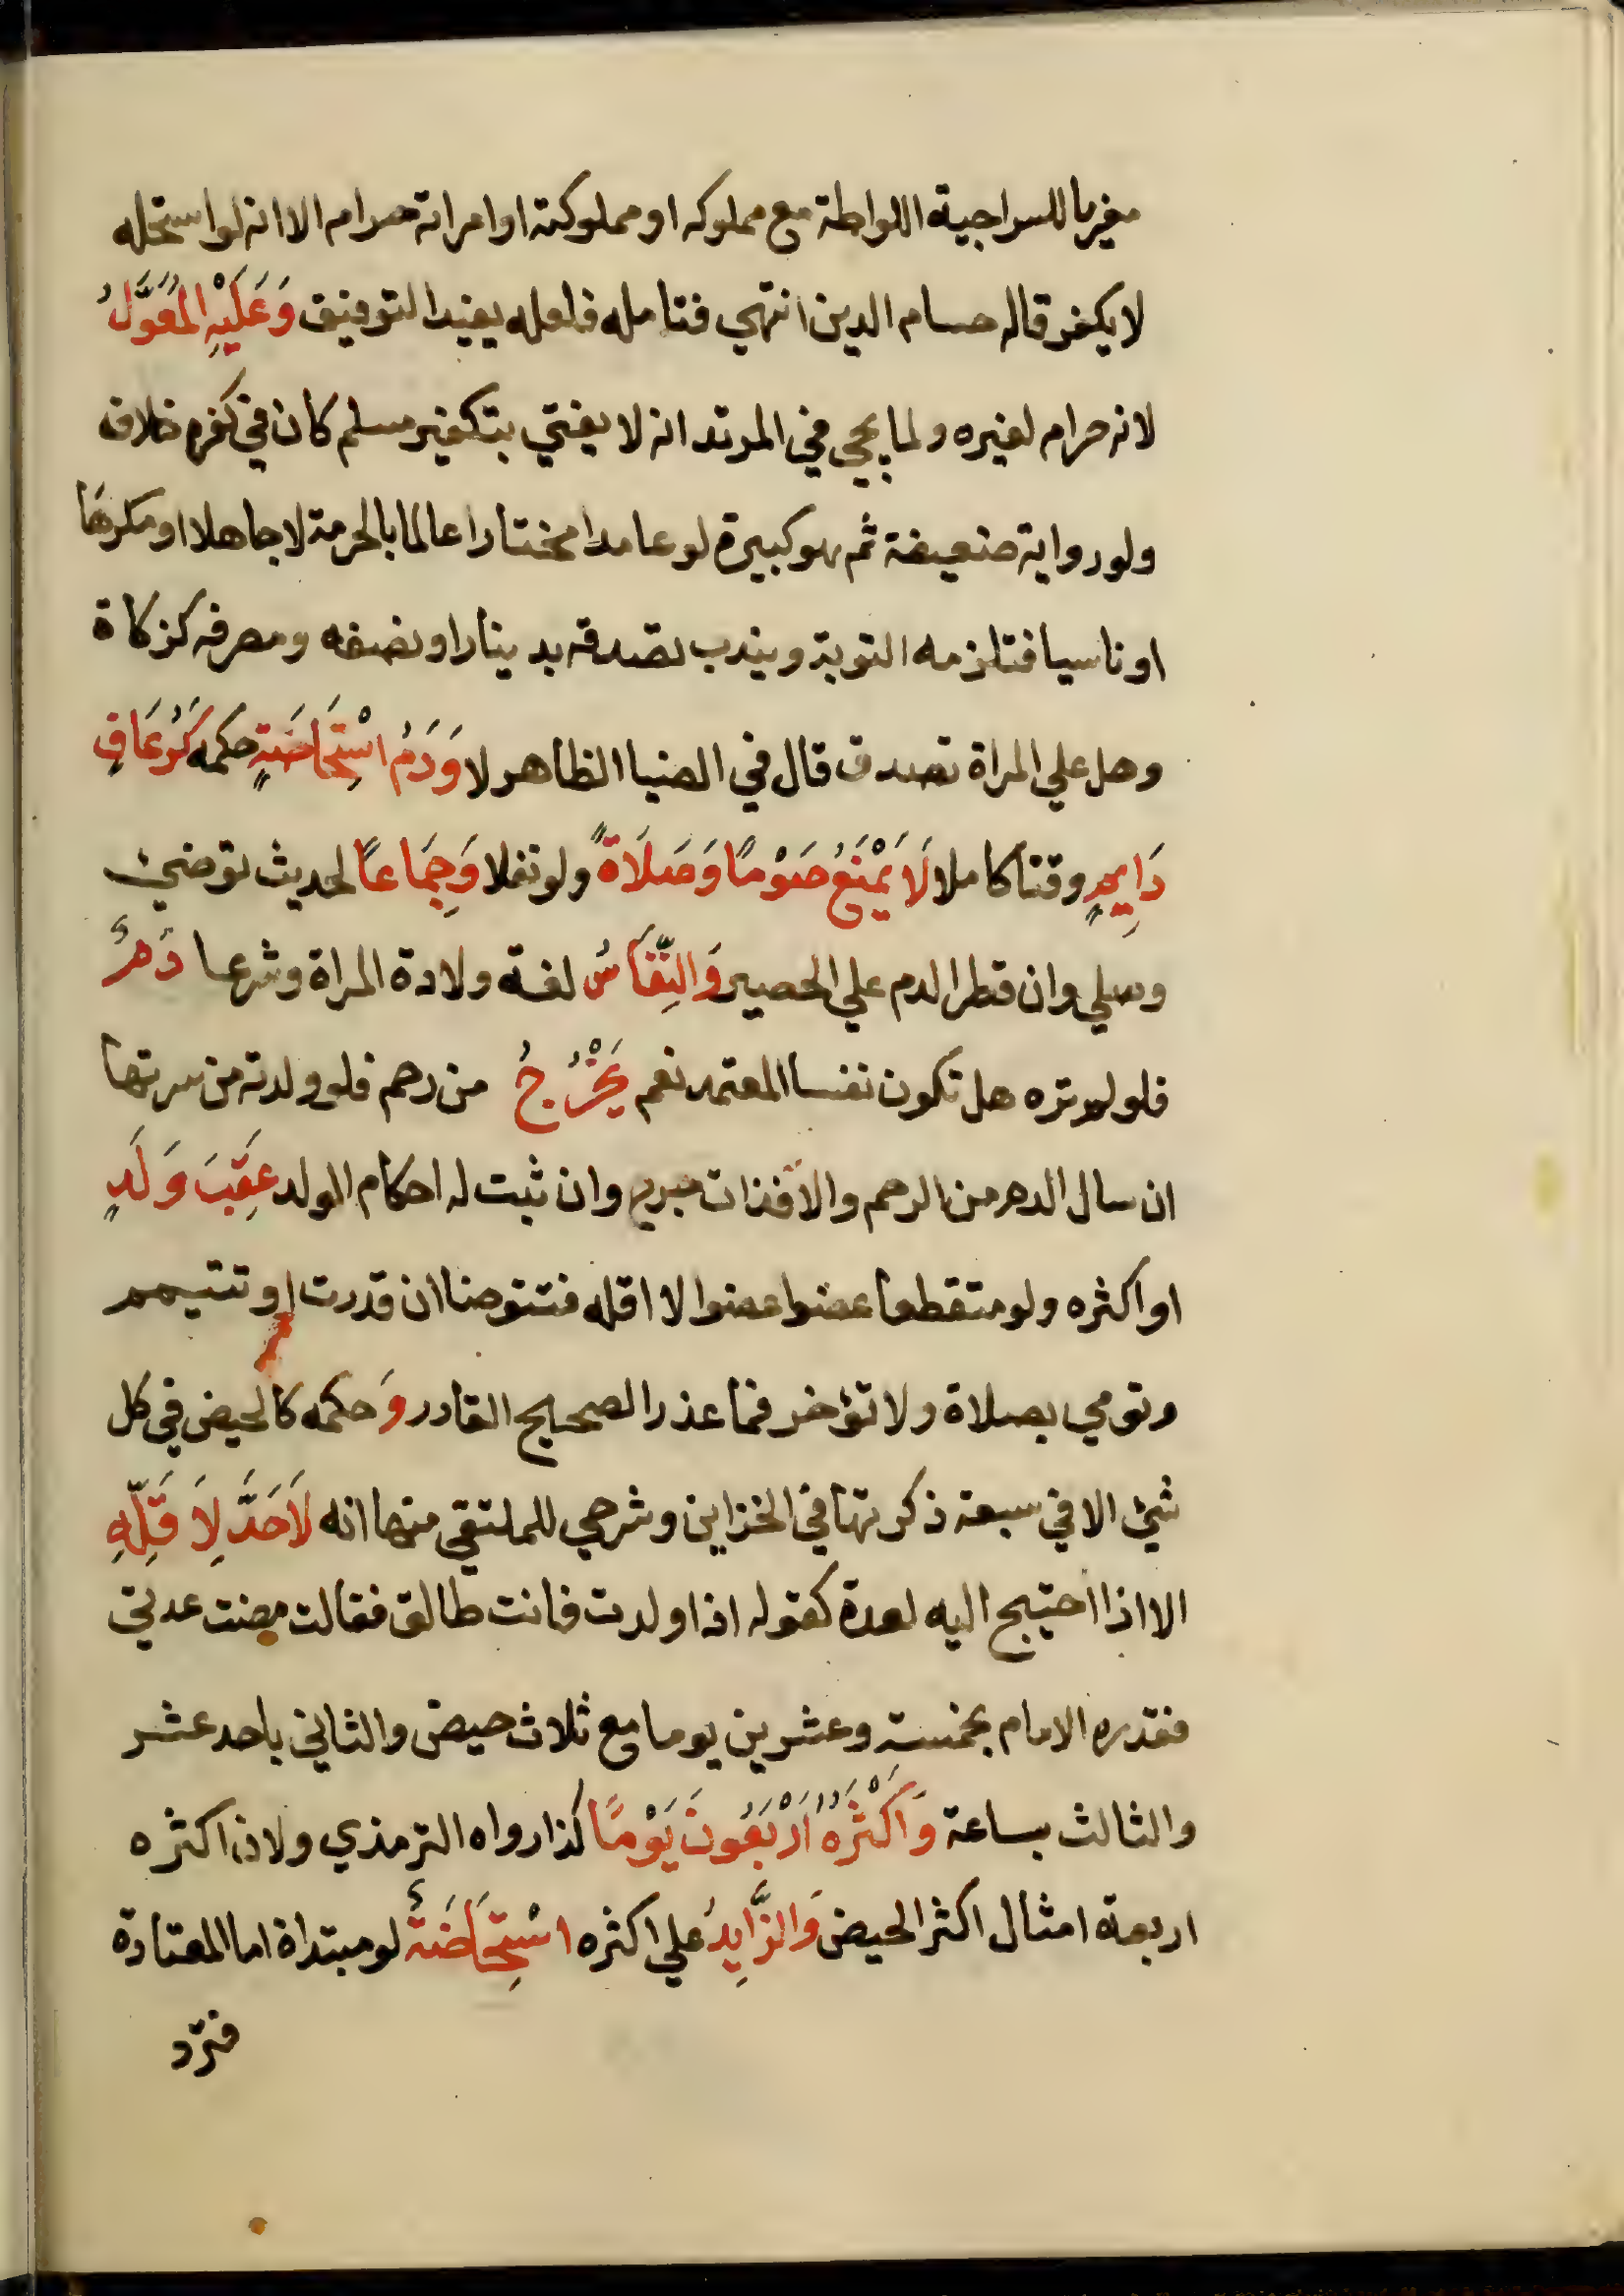 معزيا للسراجية اللواطة مع مملوكه او مملوكته او امراته حرام الا انه لو استحله
لا يكفر قاله حسام الدين انتهي فتامله فلعله يفيد التوفيق وَعَلَيْهِ الْمُعَوَّلُ
لانه حرام لغيره ولما يجي في المرتد انه لا يفتي بتكفير مسلم كان في كفره خلاف
ولو رواية ضعيفة ثم هو كبيرة لو عامدا مختارا عالما بالحرمة لا جاهلا او مكرها
او ناسيا فتلزمه التوبة ويندب تصدقه بدينار او نصفه ومصرفه كزكاة
وهل علي المراة تصدق قال في الضيا الظاهر لا وَدَمُ اسْتِحَاضَةٍ حكمه كَرُعَافٍ
دَايِمٍ وقتا كاملا لَا يَمْنَعُ صَوْمًا وَصَلَاةً ولو نفلا وَجِمَاعًا لحديث توضئ
وصلي وان قطر الدم علي الحصير وَالنِّفَاسُ لغة ولادة المراة وشرعا دَمٌ
فلو لم تره هل تكون نفسا المعتمد نعم يَخْرُجُ من رحم فلو ولدته من سرتها
ان سال الدم من الرحم والا فذات وان ثبت له احكام الولد عَقِبَ وَلَدٍ
او اكثره ولو متقطعا عضوا عضوا لا اقله فتتوضا ان قدرت او تتيمم
وتومي بصلاة ولا تؤخر فما عذر الصحيح القادر وَحكمه كالحيض في كل
شئ الا في سبعة ذكرتها في الخزاين وشرحي للملتقي منها انه لَا حَدَّ لِاَقَلِّهِ
الا اذا احتيج اليه لعدة كقوله اذا ولدت فانت طالق فقالت مضت عدتي
فقدره الامام بخمسة وعشرين يوما مع ثلاث حيض والثاني باحد عشر
والثالث بساعة وَاَكْثَرُهُ اَرْبَعُونَ يَوْمًا كذا رواه الترمذي ولان اكثره
اربعة امثال اكثر الحيض وَالزَّايِدُ علي اكثره اسْتِحَاضَةٌ لو مبتداة اما المعتادة
فترّد